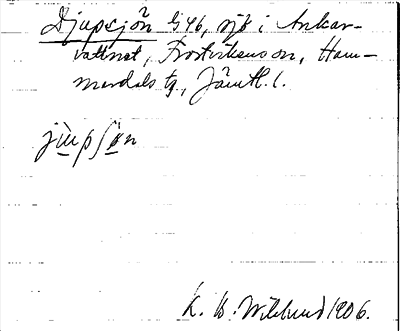 Djupsjön G46, sjö i Ankar-
vattnet, Frostvikens sn, Ham-
merdals tg, Jämtl. l.
jùpʃøn
K. B. Wiklund 1906.